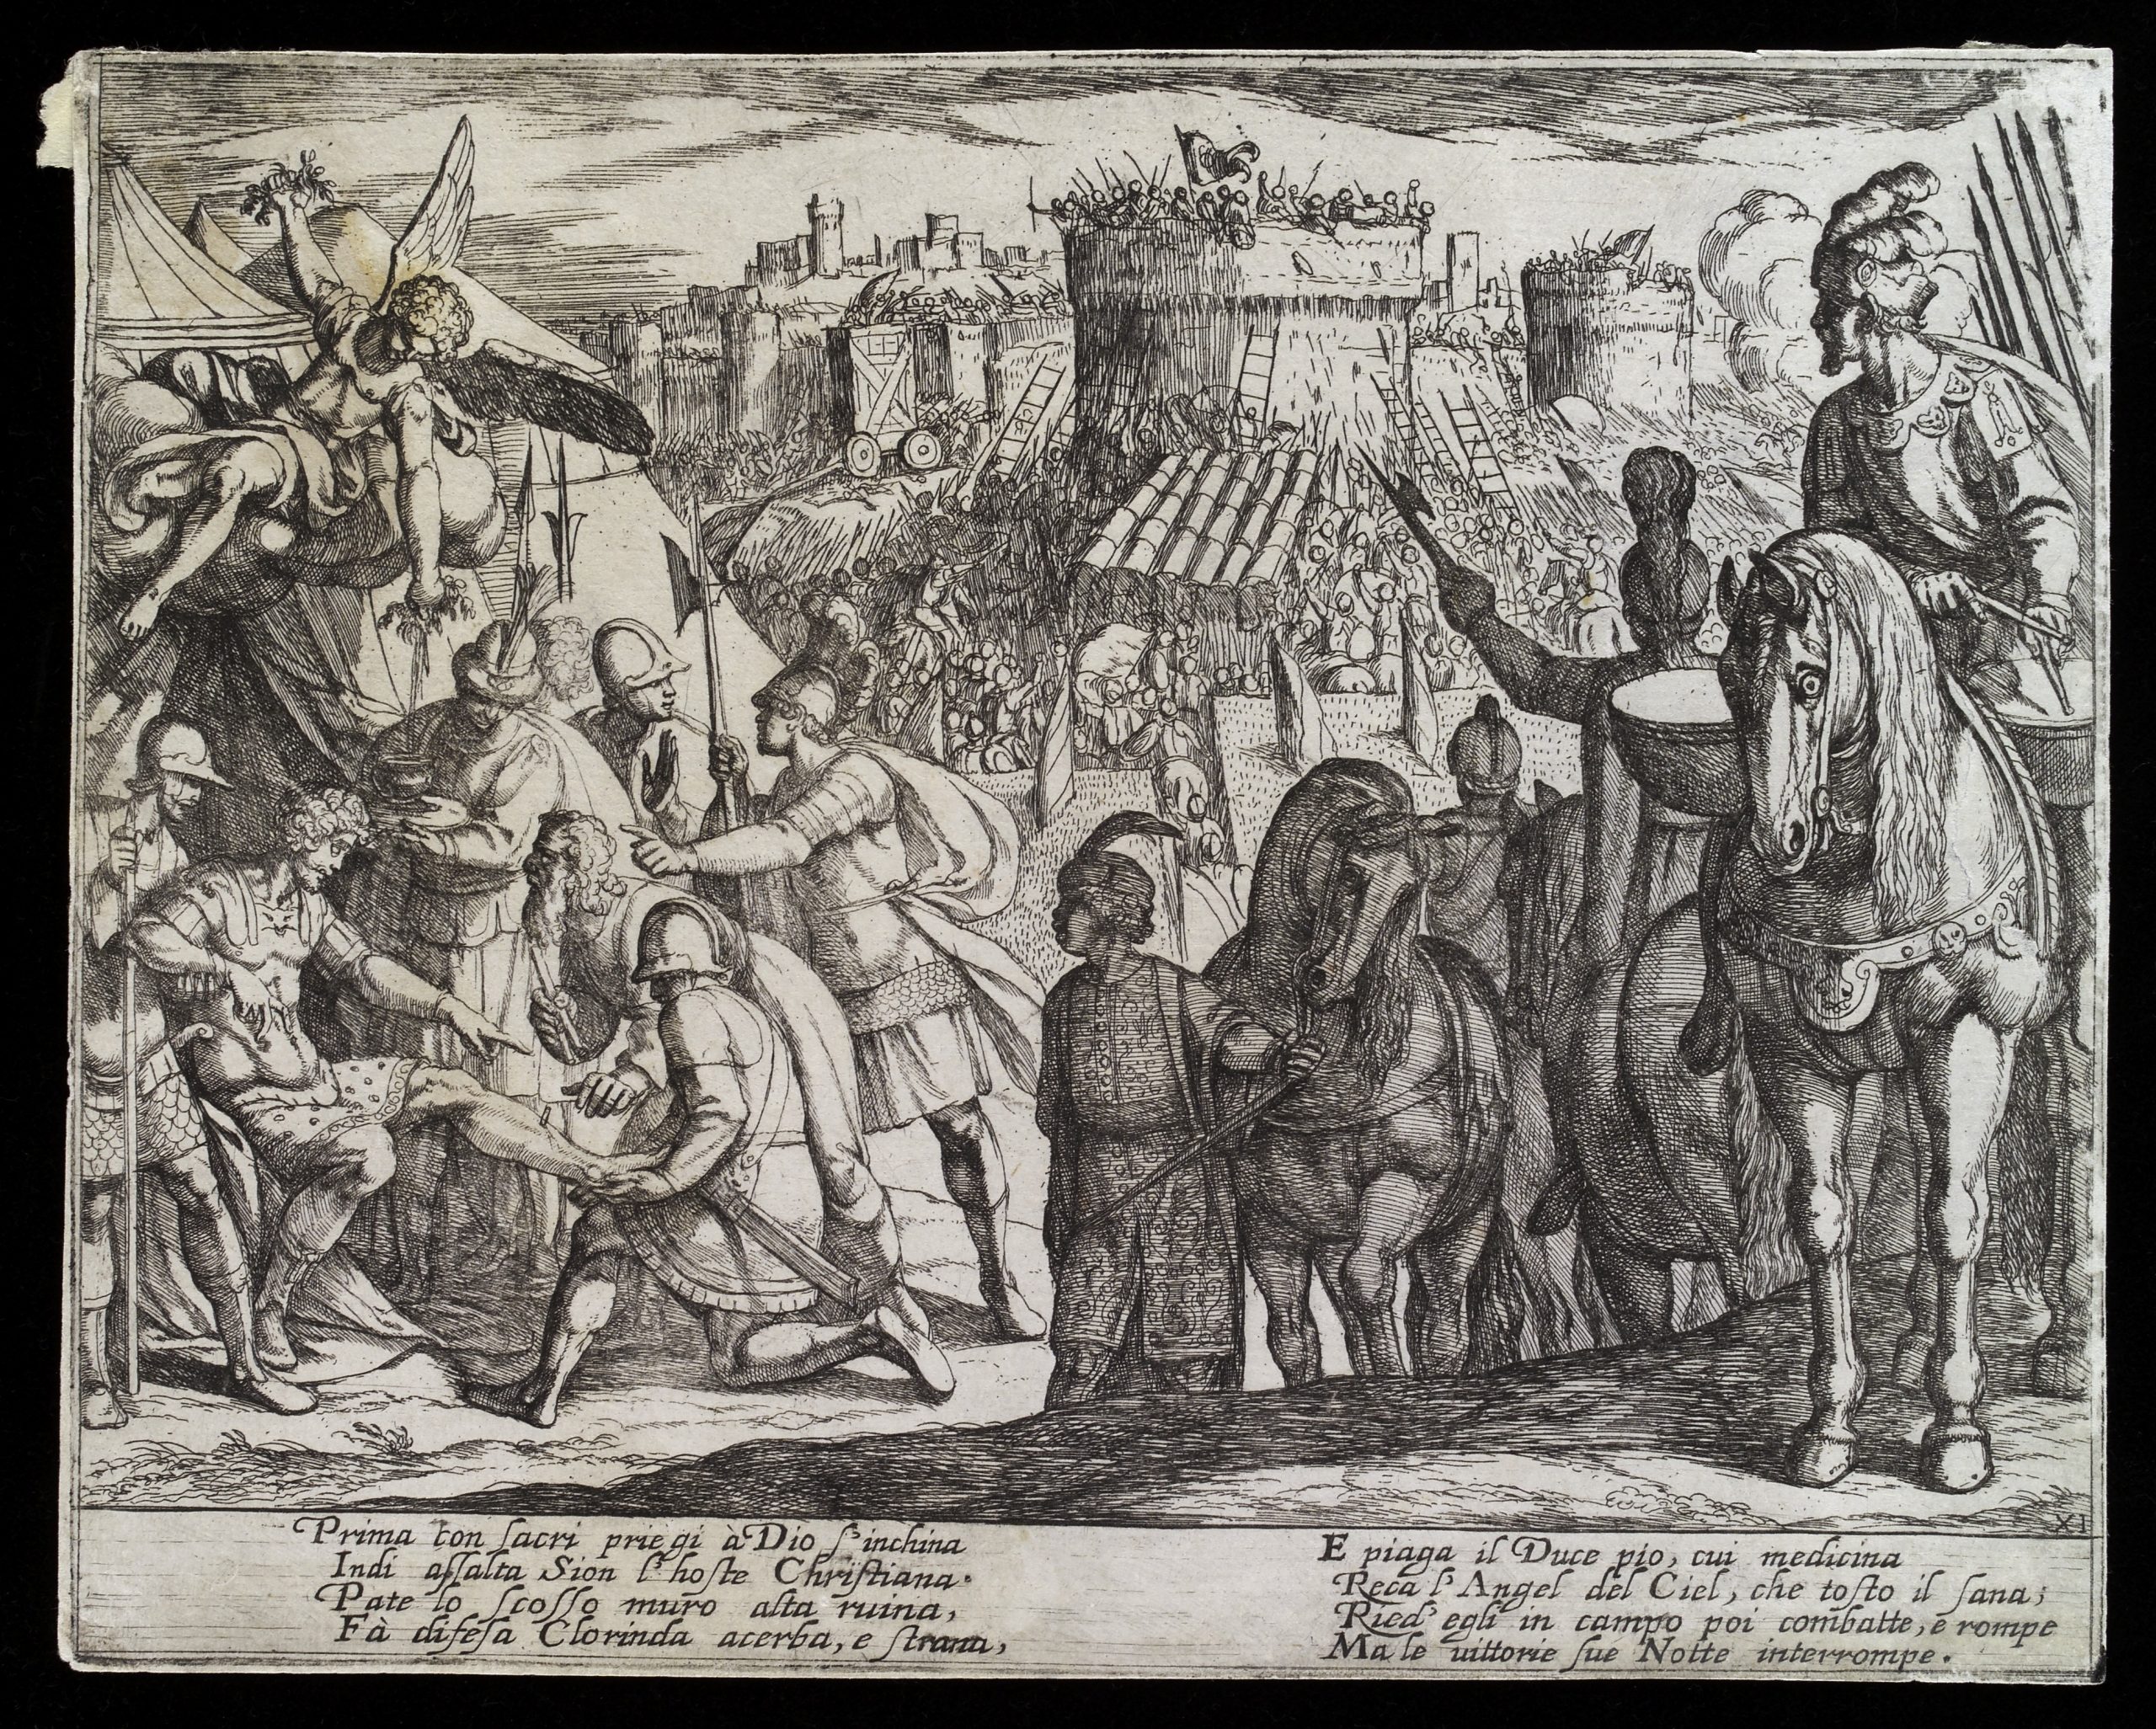 XI
Prima con sacri priegi à Dio s'inchina
Indi assalta Sion l'hoste Christiana.
Pate lo scosso muro alta ruina,
Fà difesa Clorinda acerba, e strana,
E piaga il Duce pio, cui medicina
Reca l'Angel del Ciel, che tosto il sana;
Ried' egli in campo poi combatte, e rompe
Ma le uittorie sue Notte interrompe.